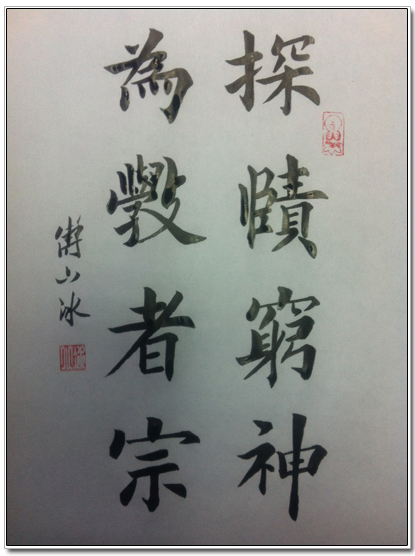 探賾窮神
為斅者宗
傅山冰